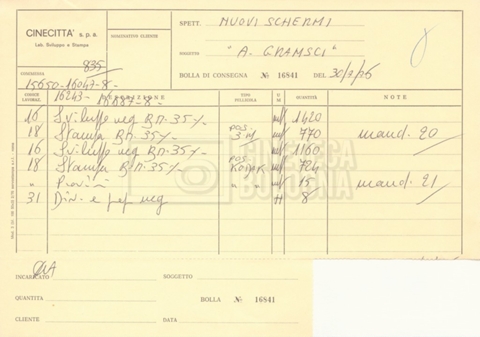 CINECITTÀ s.p.a.
Lab. Sviluppo e Stampa
NOMINATIVO CLIENTE
SPETT. NUOVI SCHERMI
SOGGETTO "A. GRAMSCI"
835
COMMISSIONE
BOLLA DI CONSEGNA № 16841 DEL 30/7/76
15650-16047-8-
16243-
CODICE LAVORAZ. DESCRIZIONE TIPO PELLICOLA U M QUANTITÀ NOTE
16 Sviluppo neg B.N. 35%- mt 1420
18 Stampa B.N. 35%- POS. 3M mt 770 mand. 20
16 Sviluppo neg B.N. 35%- mt 1160
18 Stampa B.N. 35%- POS. mt 724
" Provini " " mt 15 mand. 21
31 Div. e neg H 8
CINETECA
BOLOGNA
INCARICATO SOGGETTO
QUANTITÀ BOLLA № 16841
CLIENTE DATA